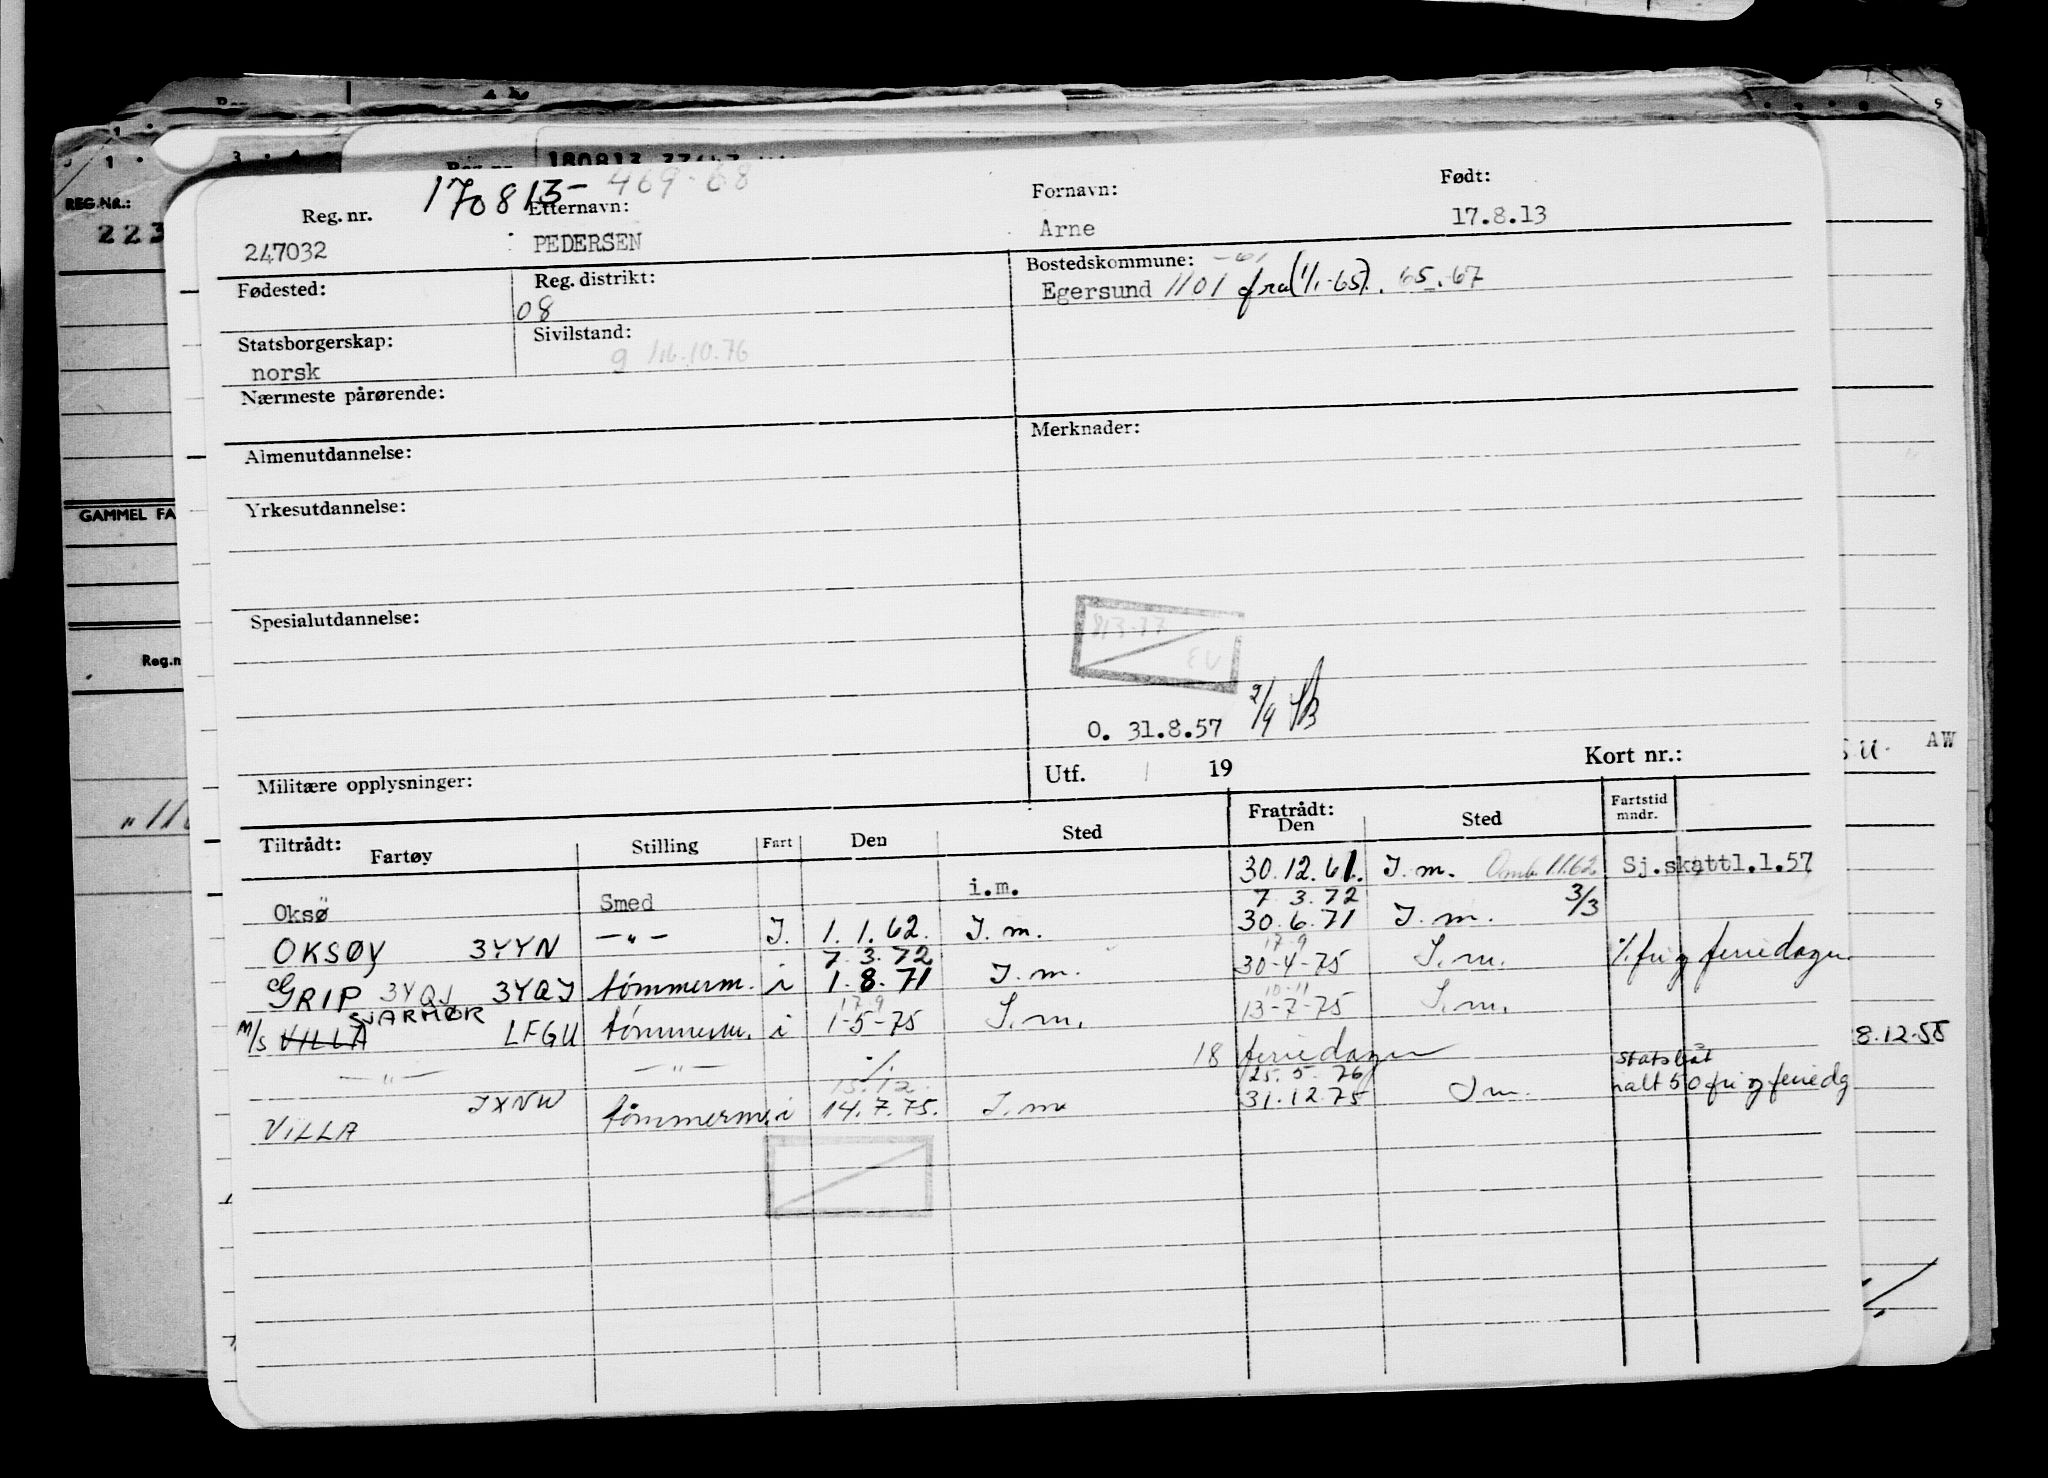 180813
REG.NR.:
223
GAMMEL FA
Reg.n
170813- 469-68
Reg. nr. Etternavn: Fornavn: Født:
247032 PEDERSEN Arne 17.8.13
Fødested: Reg. distrikt: Bostedskommune: -61
08 Egersund 1101 fra (1/1-65). 65.-67
Statsborgerskap: Sivilstand:
norsk g 16.10.76
Nærmeste pårørende:
Almenutdannelse: Merknader:
Yrkesutdannelse:
Spesialutdannelse:
O. 31.8.57 2/9
Militære opplysninger: Utf. / 19 Kort nr.:
Tiltrådt: Fratrådt: Fartstid
Fartøy Stilling Fart Den Sted Den Sted mndr.
Oksø Smed i.m. 30.12.61. I.m. Sj.skattl.1.57
7 3.72 3/3
OKSØY 3YYN -"- I. 1.1.62. I.m. 30.6.71 I.m.
7.3.72 17-9
GRIP 3YQJ 3YQJ tømmerm. i 1.8.71 I.m. 30-4-75 I.m. ./. fri og feriedager
SVARMØR 17-9 10-11
M/S VILLA LFGU tømmerm. i 1-5-75 I.m. 13-7-75 I.m.
-"- -"- ./. 18 feriedager
15.12. 25.5.76 Statsbåt
VILLA JXNW tømmerm. i 14.7.75. I.m 31.12.75 I m. halt 50 fri og feriedg
AW
8.12.58